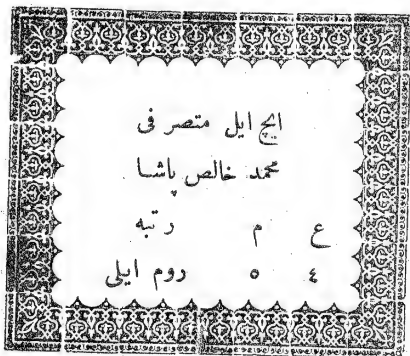 ایچ ایل متصرفی
محمد خالص پاشا
ع م رتبه
٤ ٥ روم ایلی